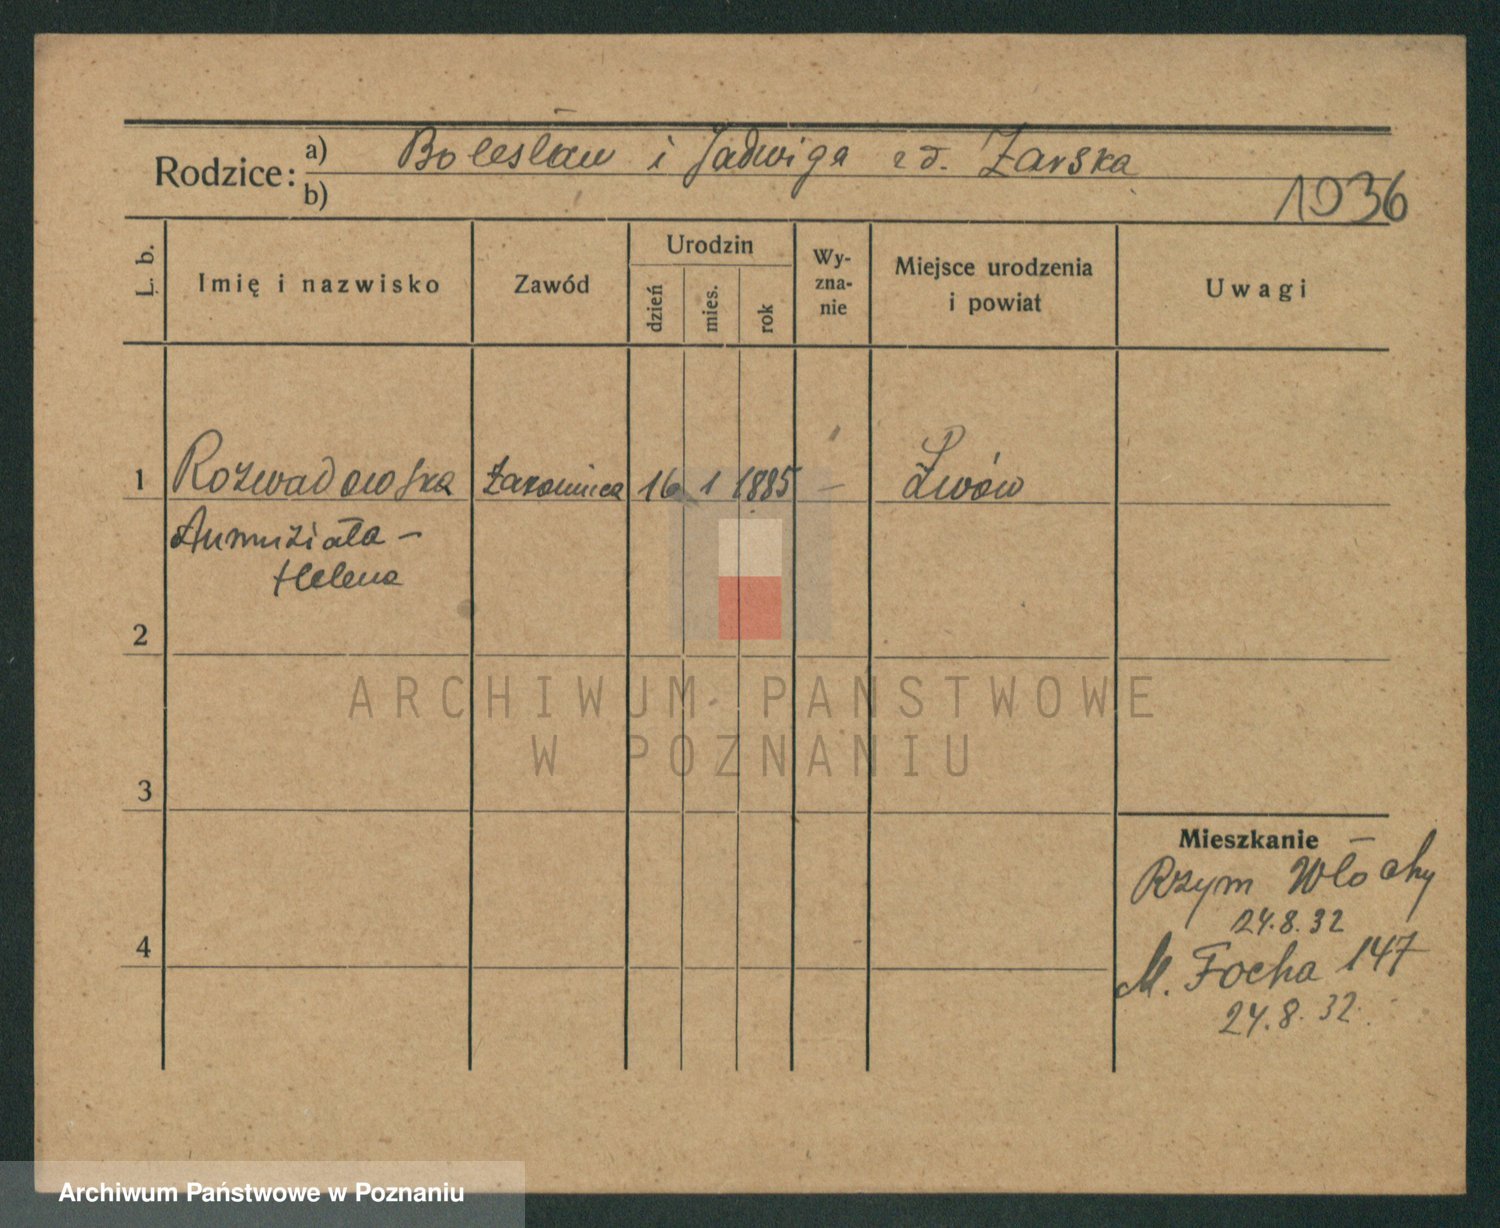 Rodzice: a) Bolesław i Jadwiga zd. Żarska
b)
1936
L. b.
Imię i nazwisko
Zawód
Urodzin
dzień
mies.
rok
Wy-
zna-
nie
Miejsce urodzenia
i powiat
Uwagi
1 Rozwadowska Zakonnica 16 1 1885 – Lwów
Anunziata –
Helena
2
ARCHIWUM PAŃSTWOWE
W POZNANIU
3
Mieszkanie
Rzym Włochy
24.8.32
4
M. Focha 147
24.8.32.
Archiwum Państwowe w Poznaniu